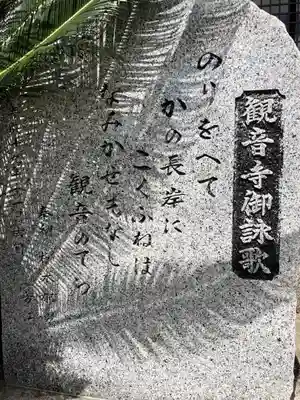 観音寺御詠歌
のりをへて
かの長岸に
こぐふねは
なみかぜもなし
観音のてつ